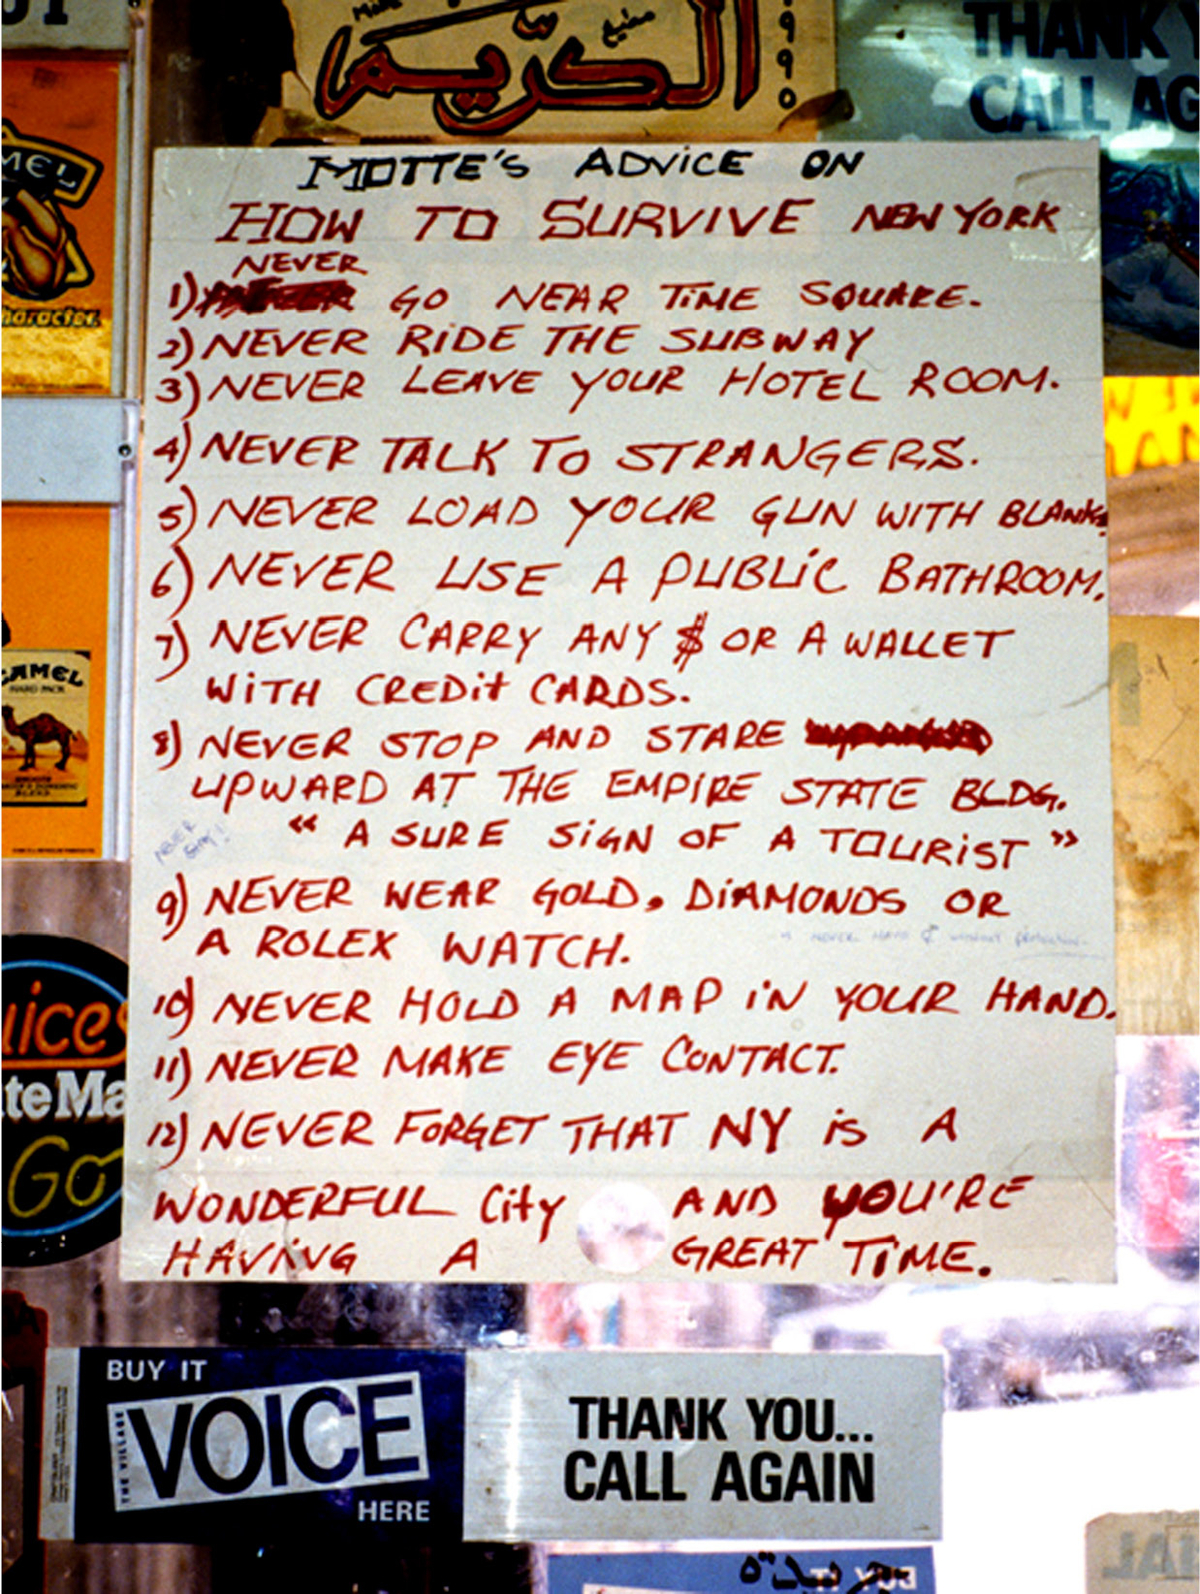 الكريم
1990
THANK
CALL AG
MOTTE'S ADVICE ON
HOW TO SURVIVE NEW YORK
NEVER
1) GO NEAR TIME SQUARE.
2) NEVER RIDE THE SUBWAY
3) NEVER LEAVE YOUR HOTEL ROOM.
4) NEVER TALK TO STRANGERS.
5) NEVER LOAD YOUR GUN WITH BLANKS
6) NEVER USE A PUBLIC BATHROOM.
7) NEVER CARRY ANY $ OR A WALLET
WITH CREDIT CARDS.
8) NEVER STOP AND STARE
UPWARD AT THE EMPIRE STATE BLDG.
“ A SURE SIGN OF A TOURIST ”
NEVER
9) NEVER WEAR GOLD, DIAMONDS OR
A ROLEX WATCH.
10) NEVER HOLD A MAP IN YOUR HAND.
11) NEVER MAKE EYE CONTACT.
12) NEVER FORGET THAT NY IS A
WONDERFUL CITY AND YOU'RE
HAVING A GREAT TIME.
MEL
haracter.
CAMEL
HARD PACK
uice
te Ma
Go
BUY IT
THE VILLAGE
VOICE
HERE
THANK YOU...
CALL AGAIN